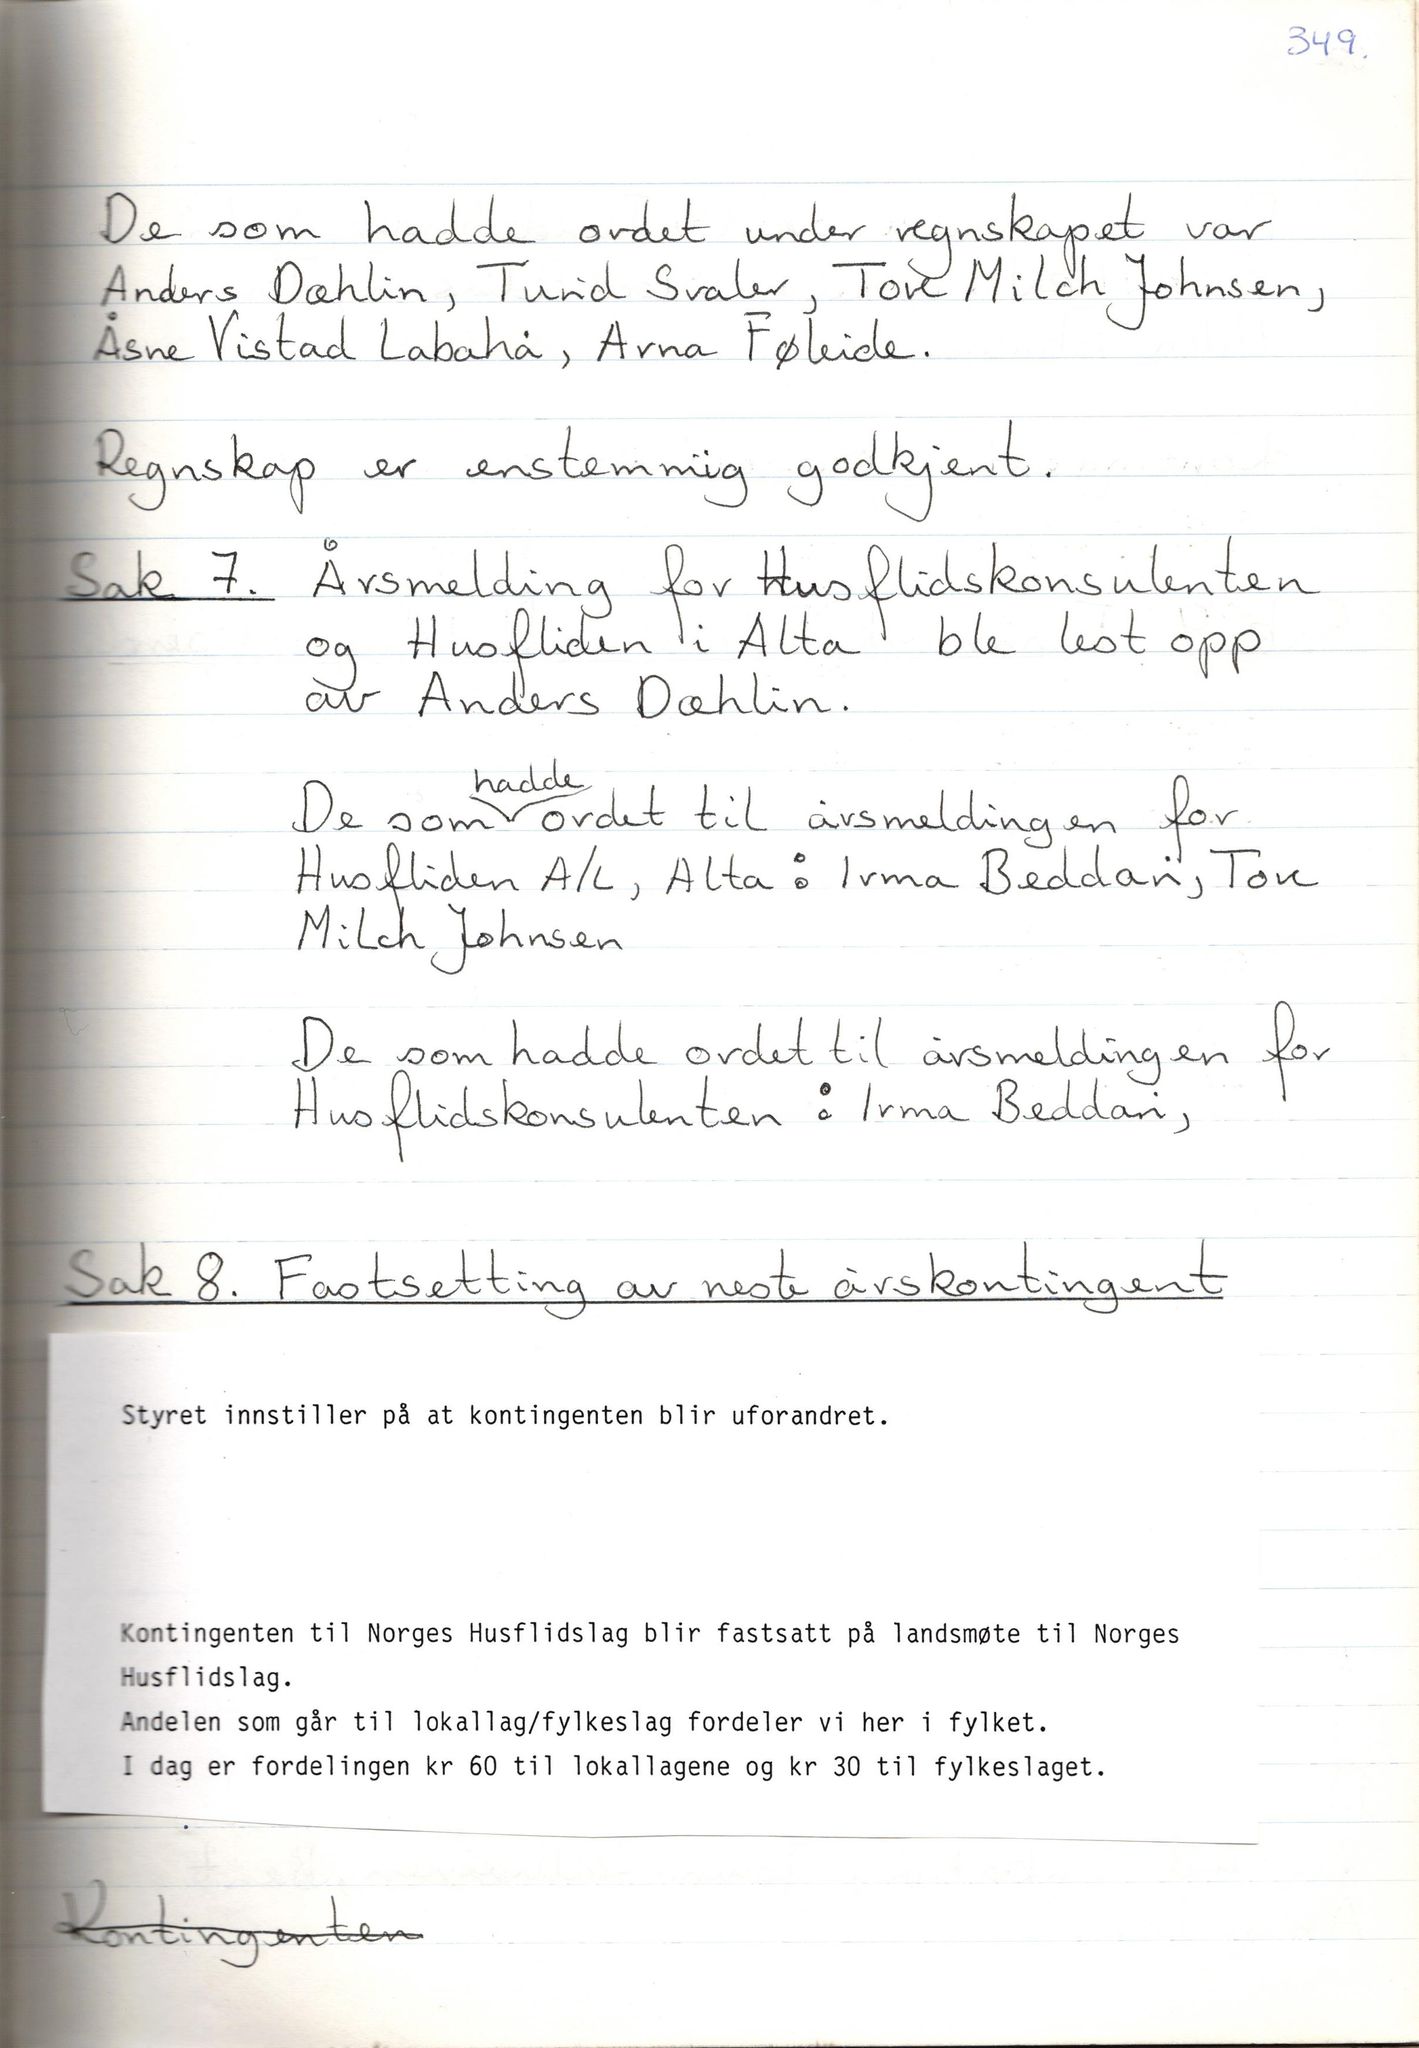 349.
De som hadde ordet under regnskapet var
Anders Dæhlin, Turid Svaler, Tove Milch Johnsen,
Åsne Vistad Labahå, Arna Føleide.
Regnskap er enstemmig godkjent.
Sak 7. Årsmelding for Husflidskonsulenten
og Husfliden i Alta ble lest opp
av Anders Dæhlin.
De som hadde ordet til årsmeldingen for
Husfliden A/L, Alta: Irma Beddari, Tove
Milch Johnsen
De som hadde ordet til årsmeldingen for
Husflidskonsulenten: Irma Beddari,
Sak 8. Fastsetting av neste årskontingent
Styret innstiller på at kontingenten blir uforandret.
Kontingenten til Norges Husflidslag blir fastsatt på landsmøte til Norges
Husflidslag.
Andelen som går til lokallag/fylkeslag fordeler vi her i fylket.
I dag er fordelingen kr 60 til lokallagene og kr 30 til fylkeslaget.
Kontingenten